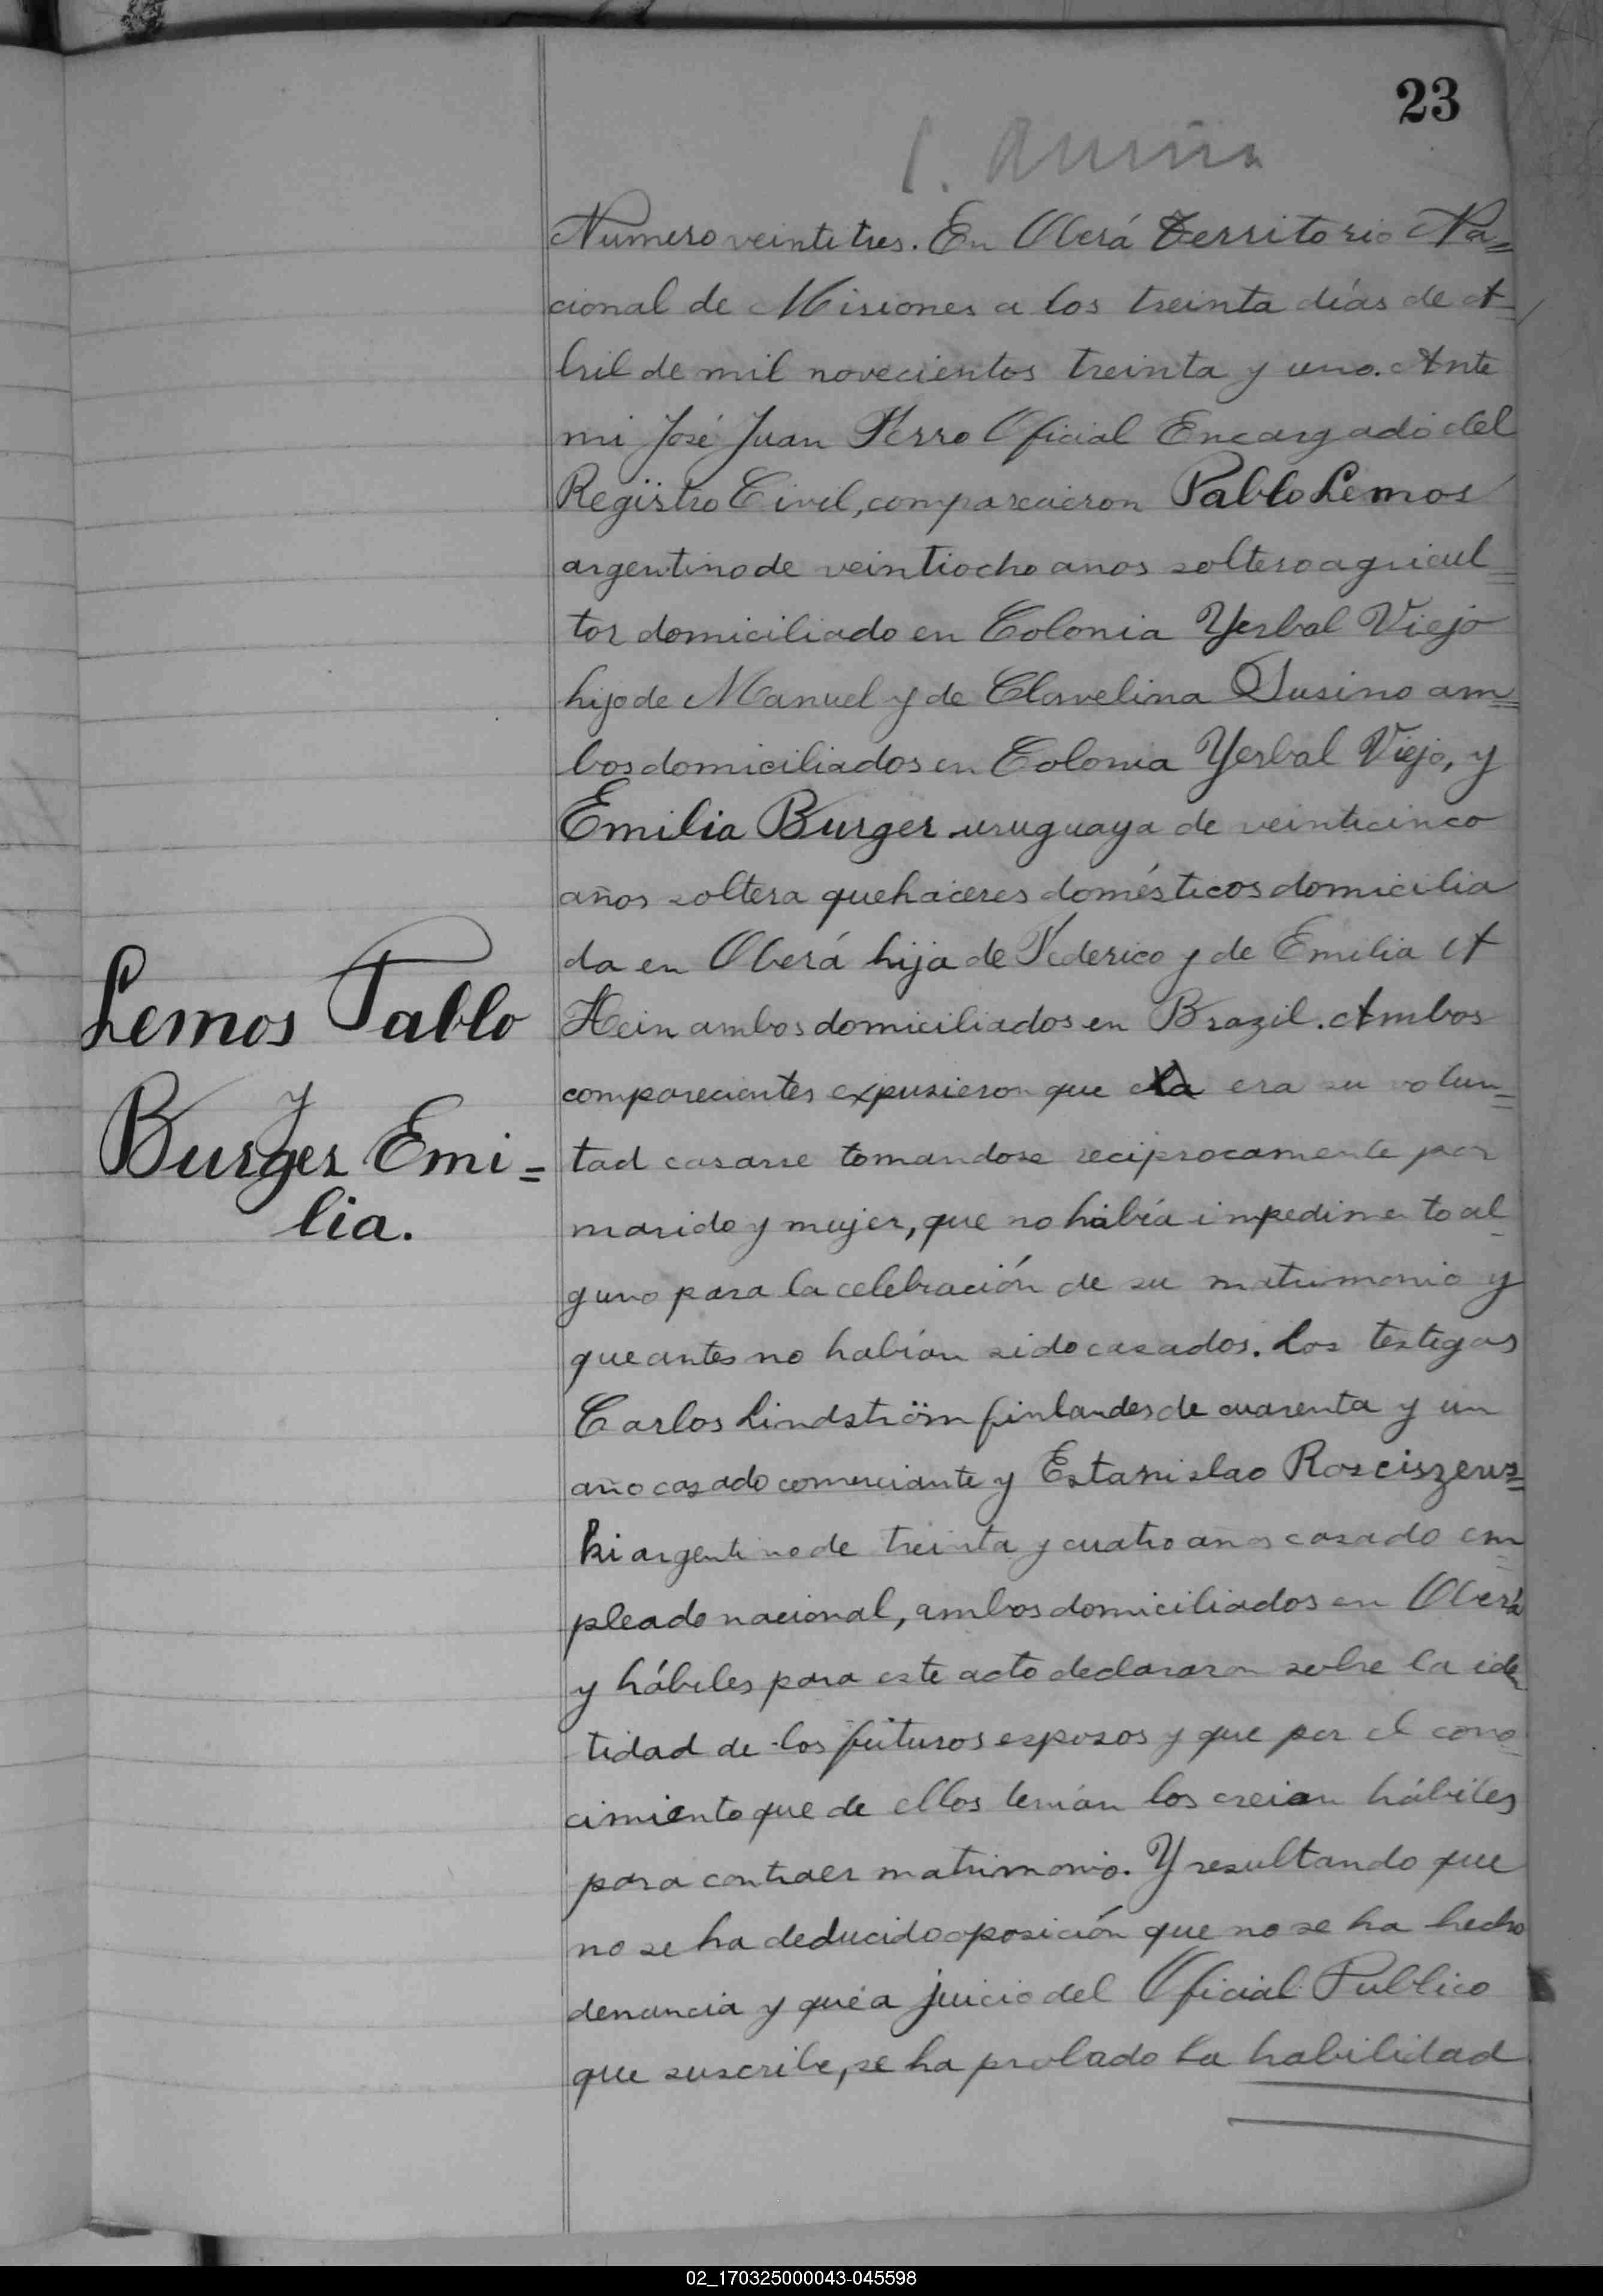 23
Numero veintitres. En Oberá Territorio Na=
cional de Misiones a los treinta días de A=
bril de mil novecientos treinta y uno. Ante
mi José Juan Ferro Oficial Encargado del
Registro Civil, comparecieron Pablo Lemos
argentino de veintiocho anos soltero agricul=
tor domiciliado en Colonia Yerbal Viejo
hijo de Manuel y de Clavelina Susino am=
bos domiciliados en Colonia Yerbal Viejo, y
Emilia Burger uruguaya de veinticinco
años soltera quehaceres domésticos domicilia
da en Oberá hija de Federico y de Emilia A
Hein ambos domiciliados en Brazil. Ambos
comparecientes expusieron que era su volun=
tad casarse tomandose reciprocamente por
marido y mujer, que no había impedimento al-
guno para la celebración de su matrimonio y
que antes no habían sido casados. Los testigos
Carlos Lindström finlandes de cuarenta y un
año casado comerciante y Estanislao Rosciszews=
ki argentino de treinta y cuatro anos casado em=
pleado nacional, ambos domiciliados en Oberá
y hábiles para este acto declararon sobre la iden
tidad de los futuros esposos y que por el cono-
cimiento que de ellos tenían los creian hábiles
para contraer matrimonio. Y resultando que
no se ha deducido oposición que no se ha hecho
denuncia y que a juicio del Oficial Publico
que suscribe, se ha probado la habilidad
Lemos Pablo
y
Burger Emi=
lia.
02_170325000043-045598